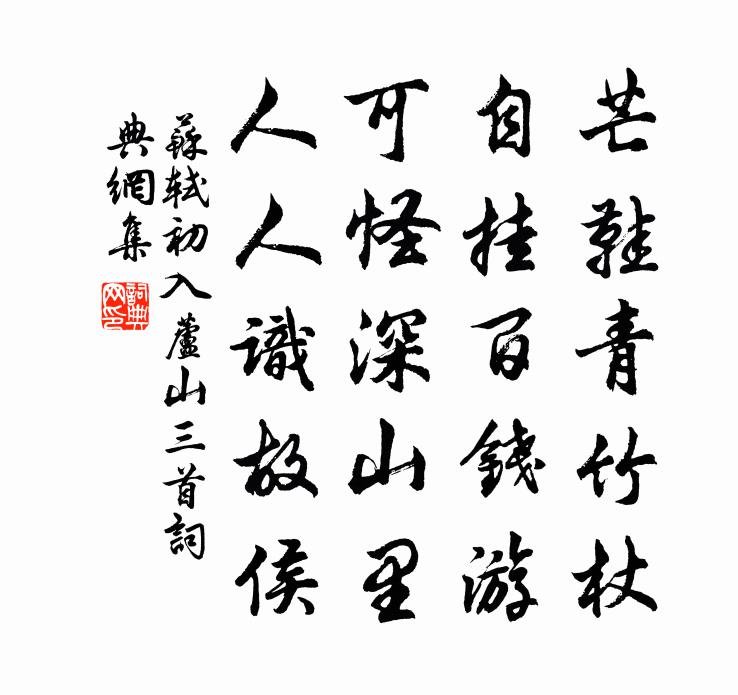 芒鞋青竹杖
自挂百錢游
可怪深山里
人人識故侯
蘇軾初入蘆山三首詞
典網集
詞典
网印